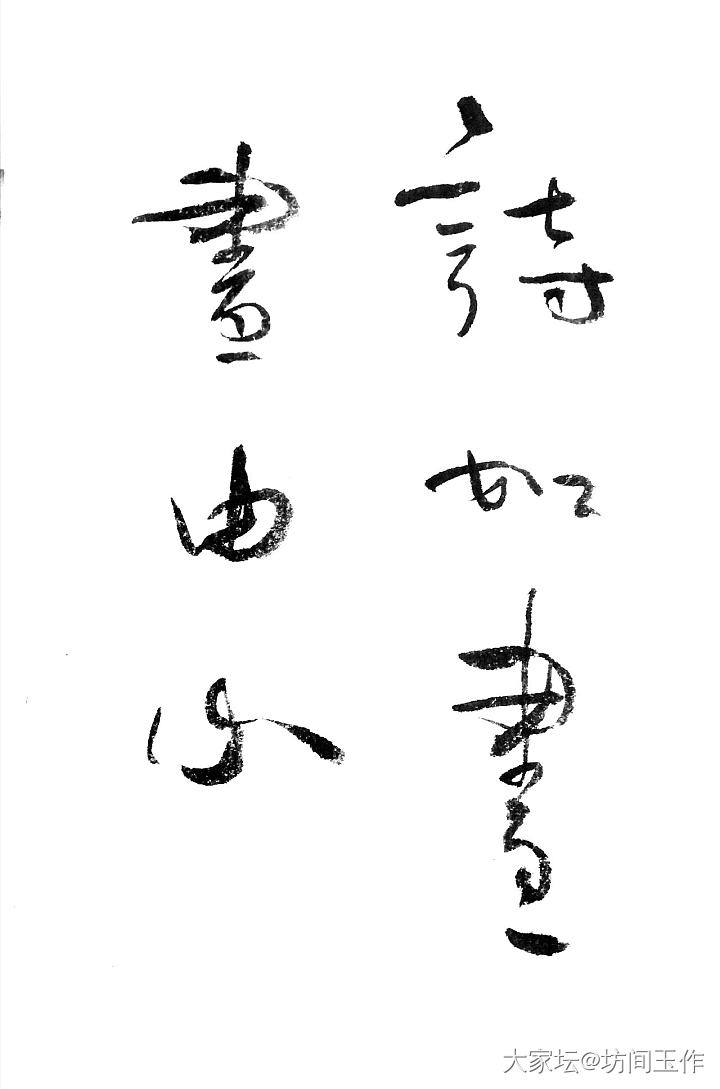 詩如畫
畫由心
大家坛@坊间玉作